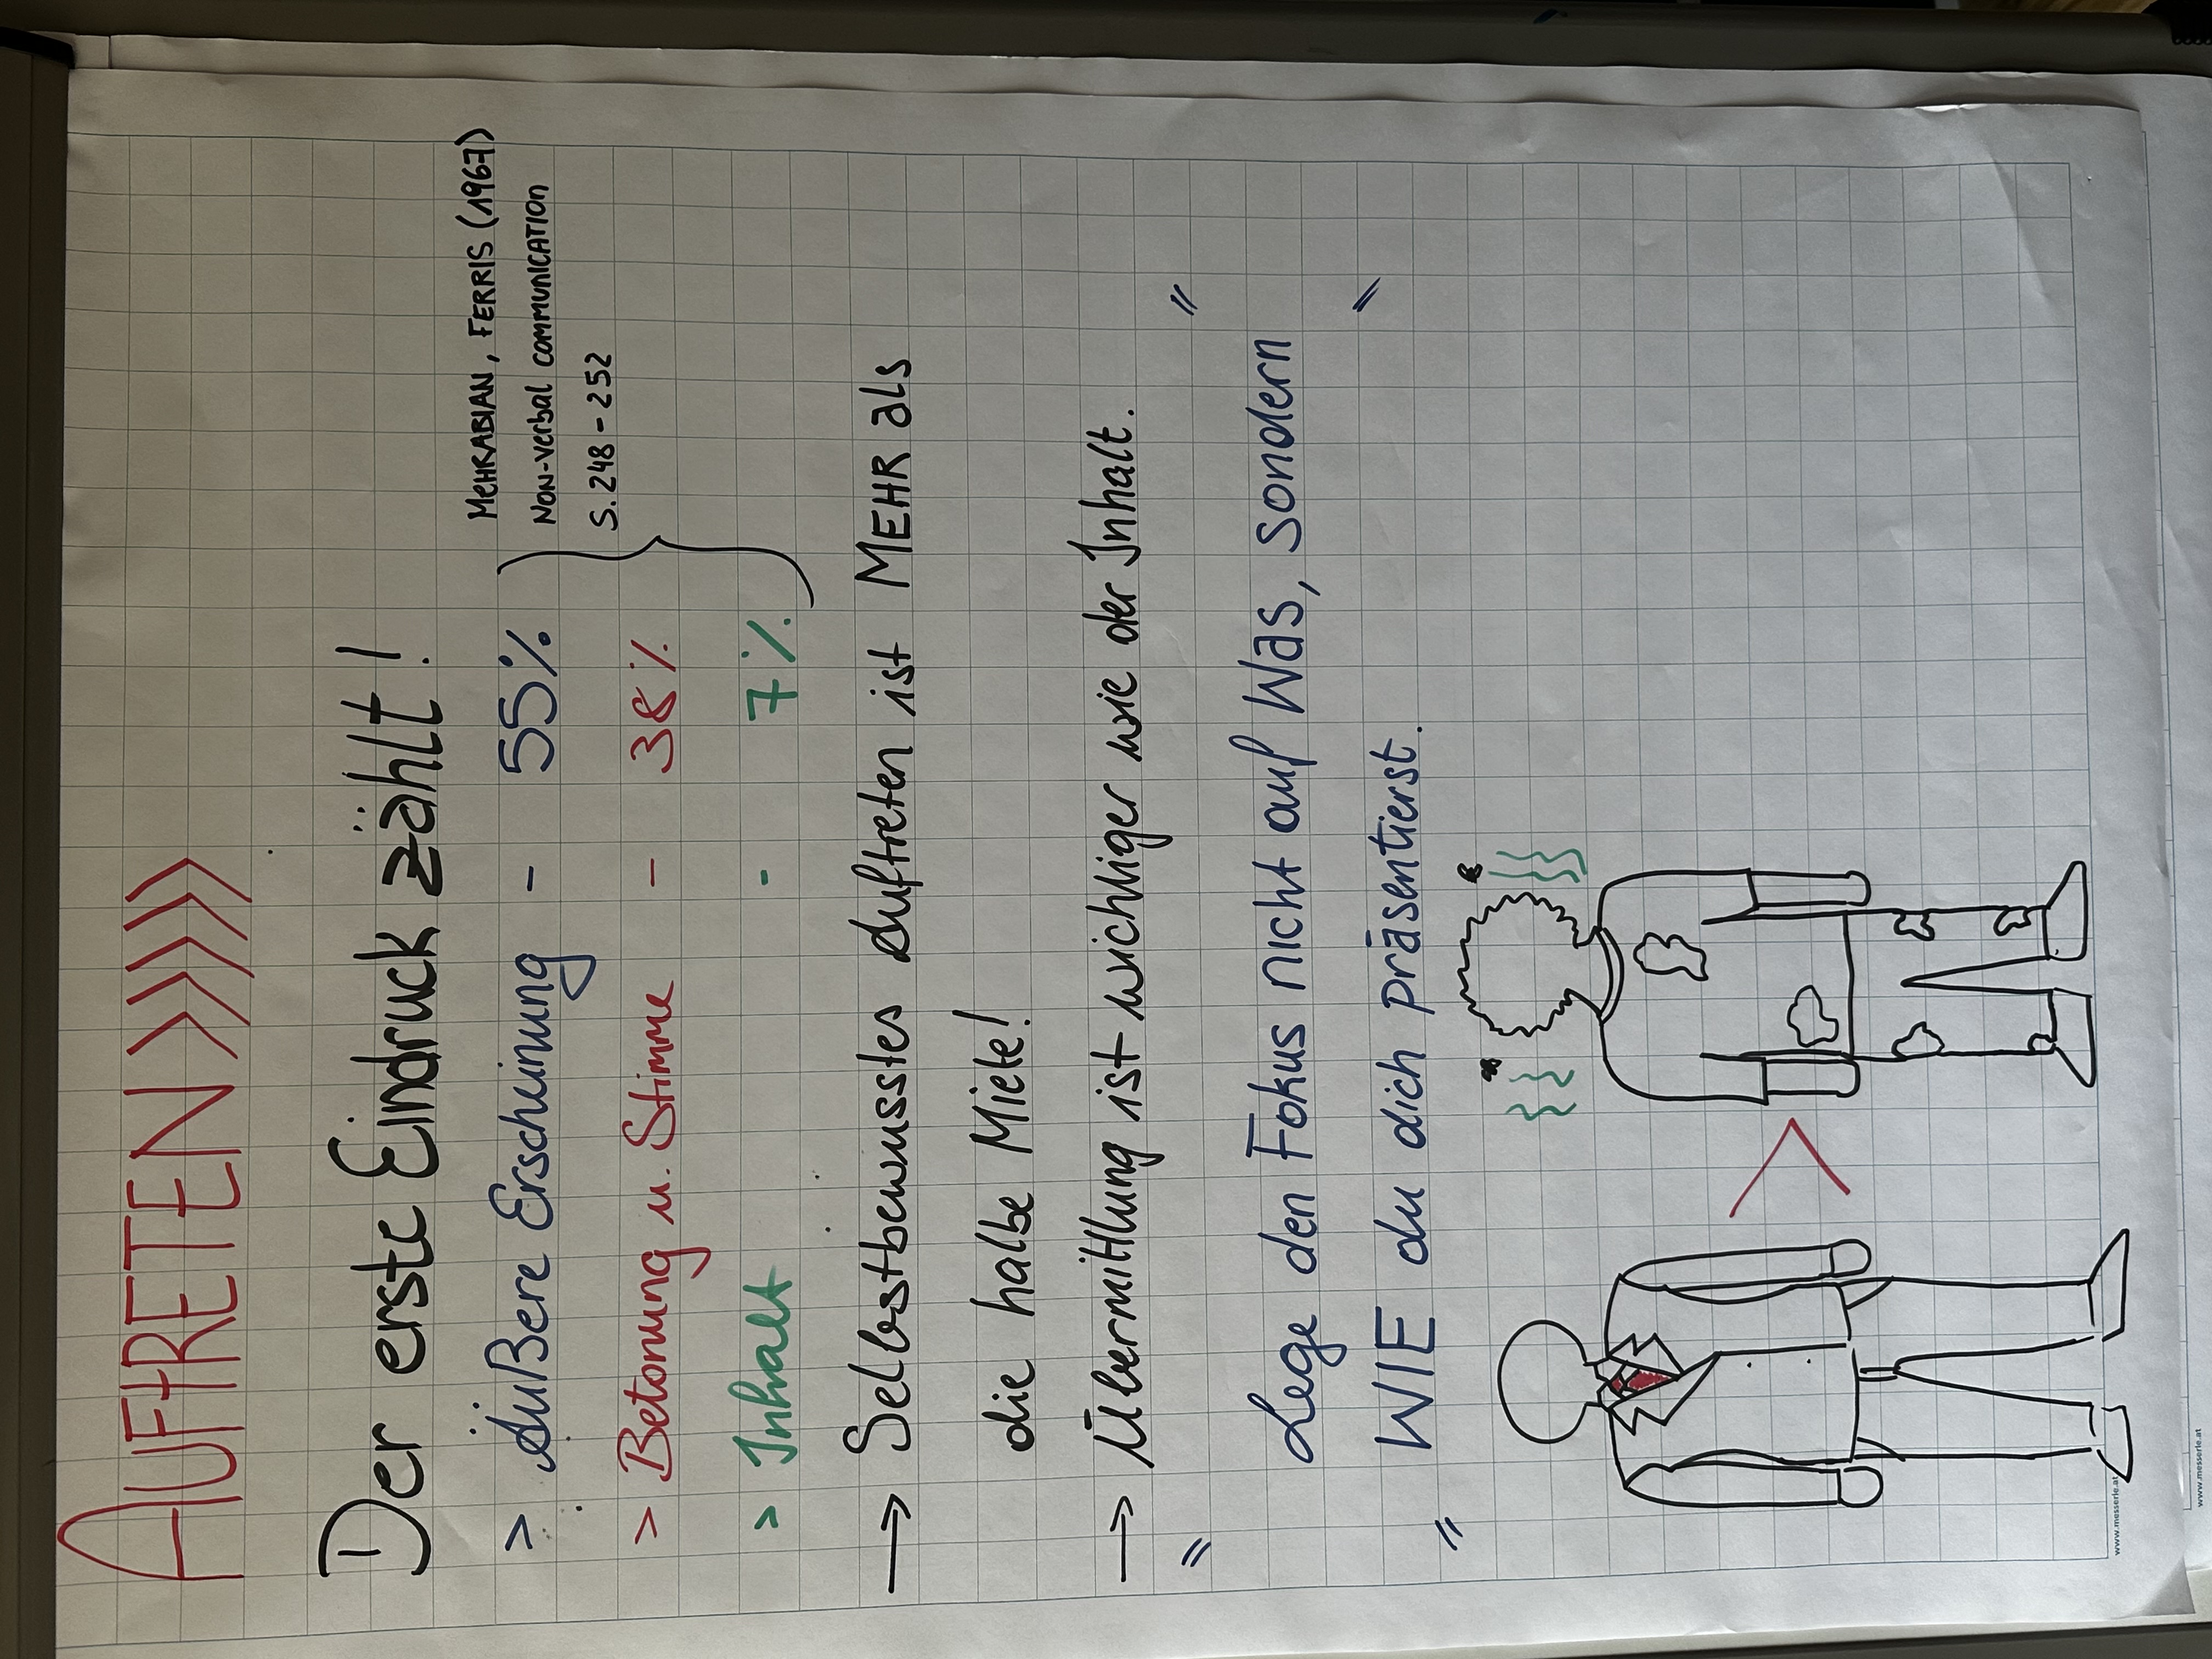 AUFTRETEN >>>>>
Der erste Eindruck zählt!
MEHRABIAN, FERRIS (1967)
NON-verbal communication
S. 248 - 252
> Äußere Erscheinung - 55%
> Betonung u. Stimme - 38%
> Inhalt - 7%
→ Selbstbewusstes Auftreten ist MEHR als
die halbe Miete!
→ Übermittlung ist wichtiger wie der Inhalt.
" "
Lege den Fokus nicht auf Was, sondern
WIE du dich präsentierst.
" "
>
www.messerle.at
www.messerle.at